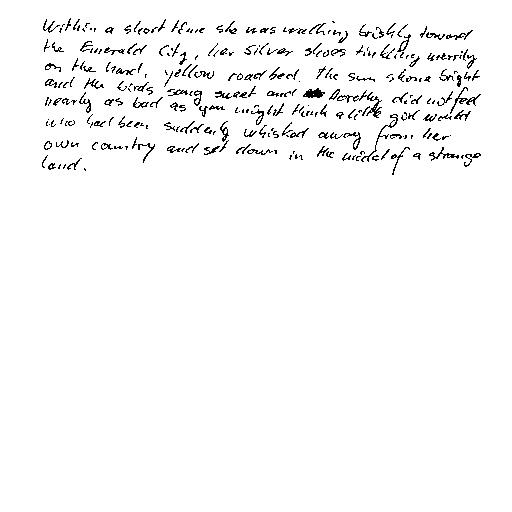 Within a short time she was walking briskly toward
the Emerald City, her Silver Shoes tinkling merrily
on the hard, yellow roadbed. The sun shone bright
and the birds sang sweet and Dorothy did not feel
nearly as bad as you might think a little girl would
who had been suddenly whisked away from her
own country and set down in the midst of a strange
land.